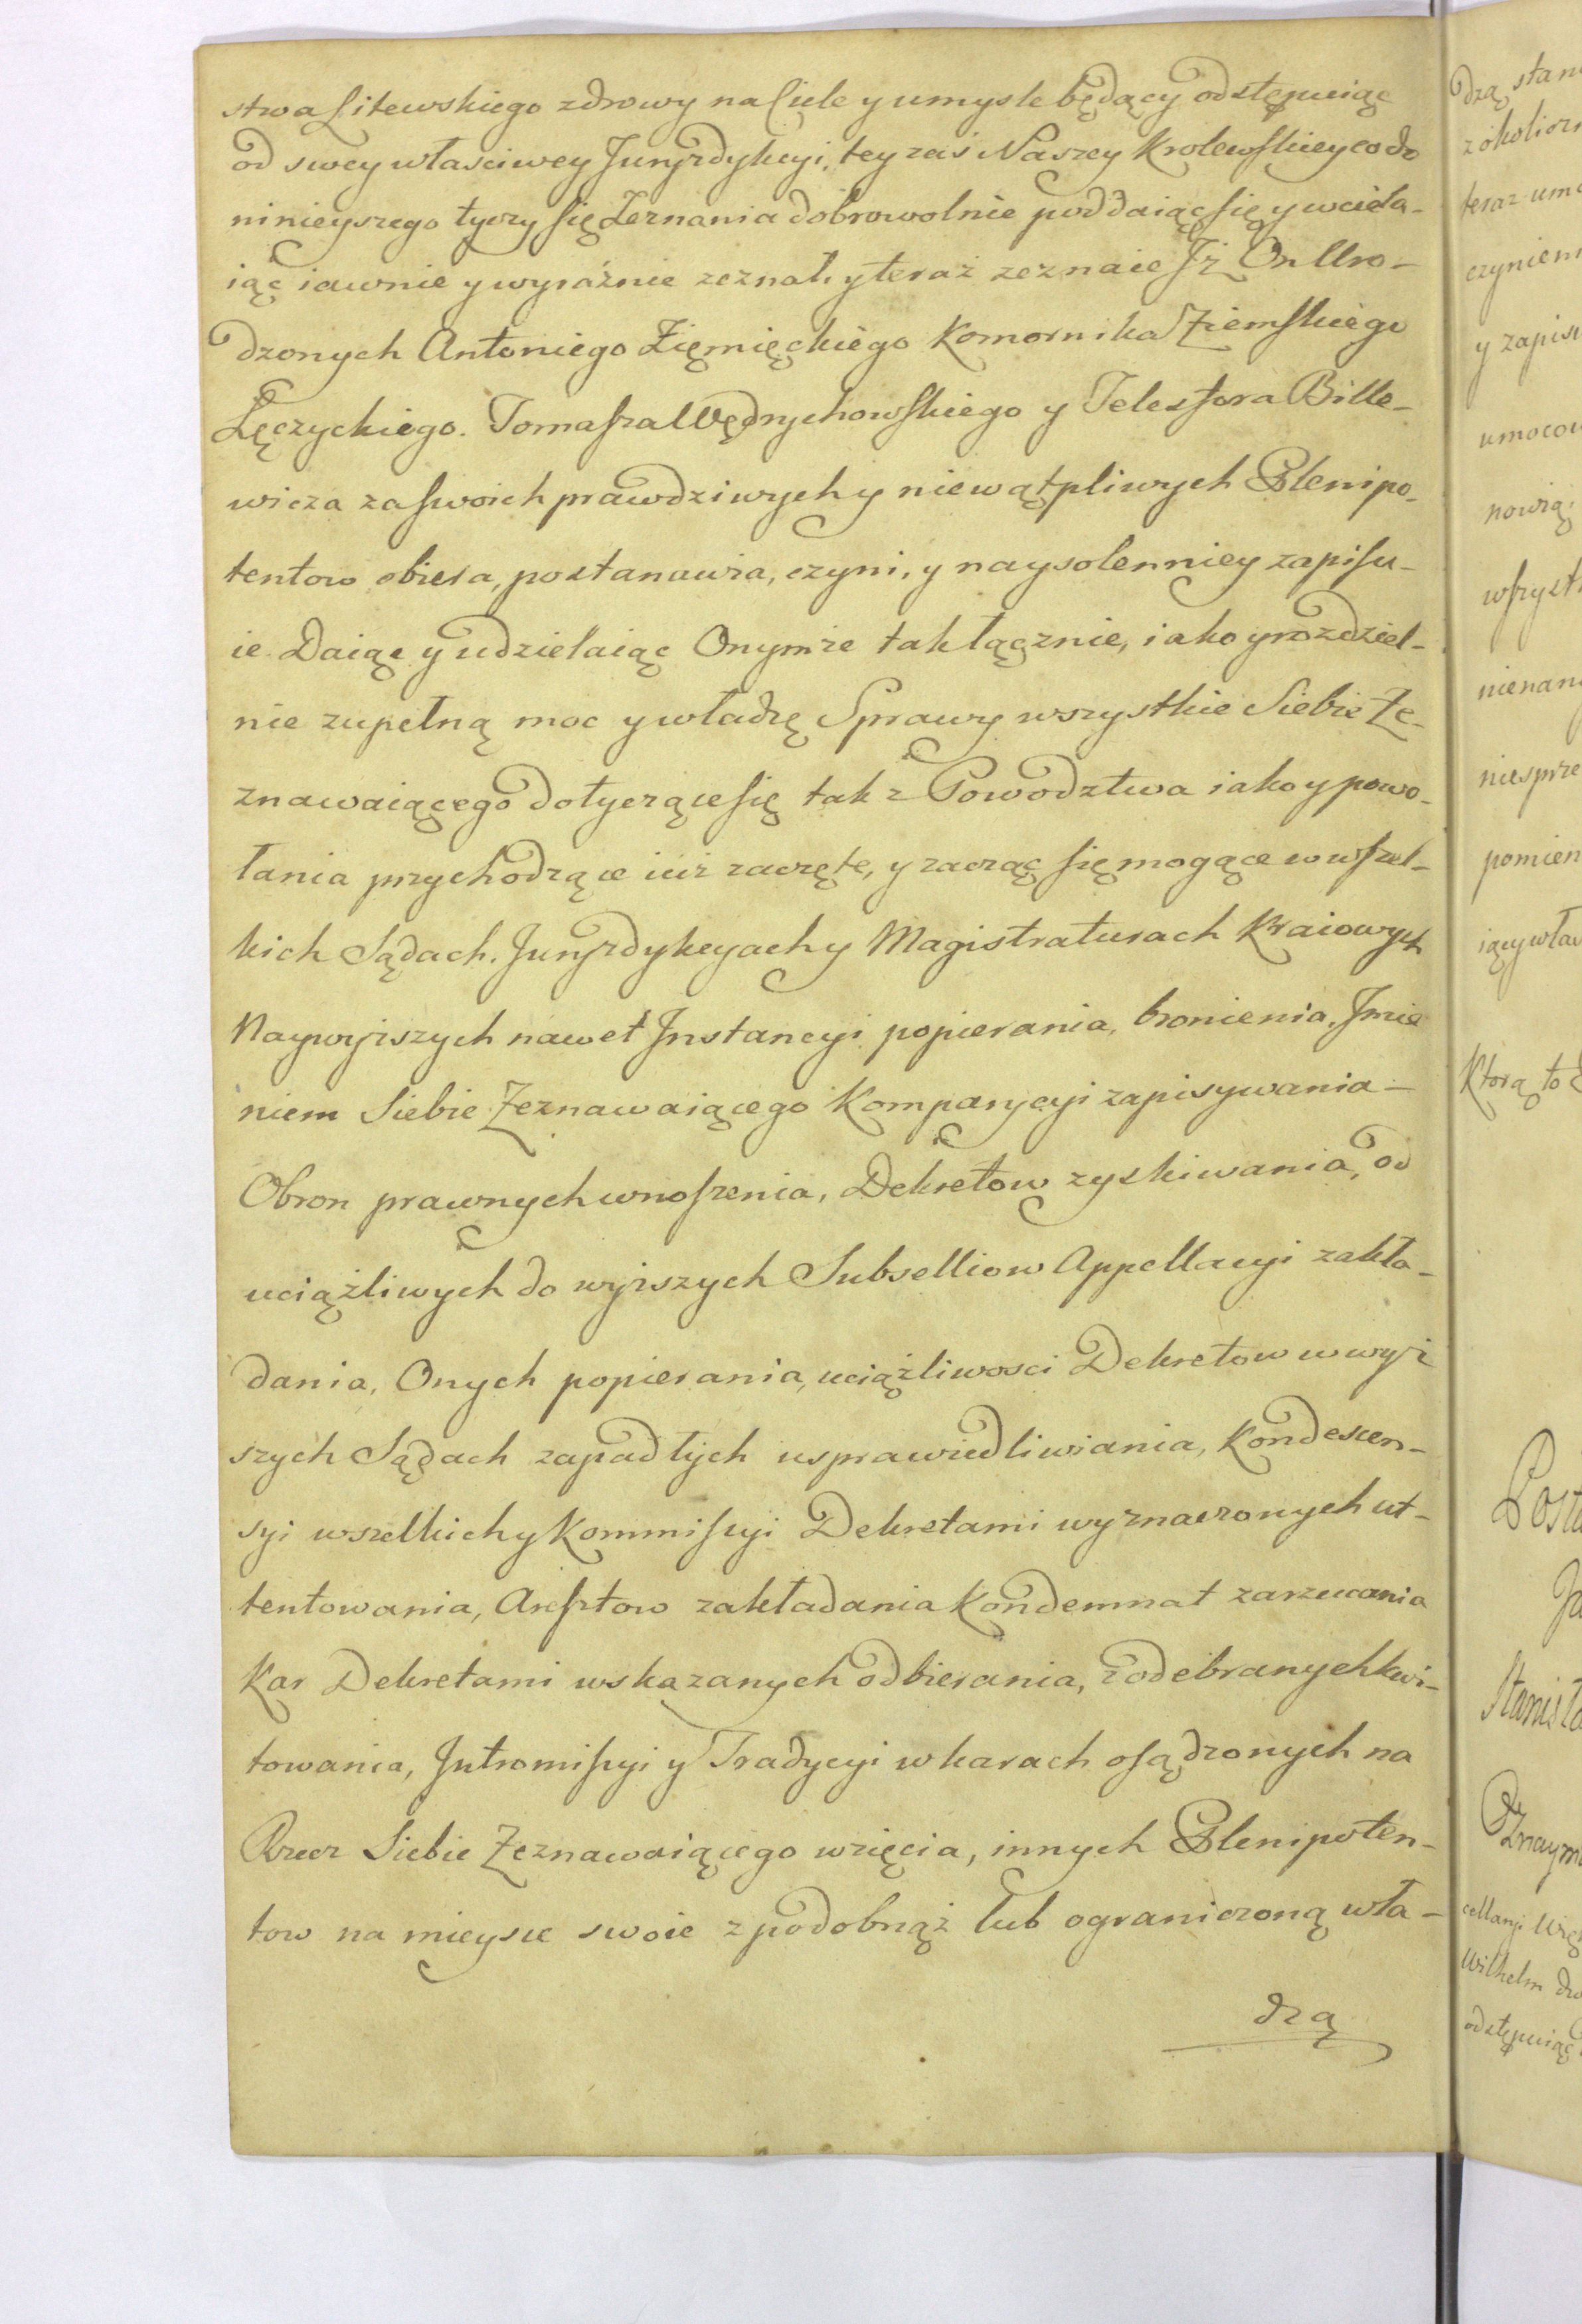 stwa Litewskiego zdrowy na Ciele y umysle będący odstępuiąc
od swey właściwey Juryzdykcyi, tey zaś Naszey Krolewskiey co do
ninieyszego tyczy się Zeznania dobrowolnie poddaiąc się y wciela-
iąc iawnie y wyráźnie zeznał, y teraż zeznaie Jż On Uro-
dzonych Antoniego Ziemięckiego Komornika Ziemskiego
Łęczyckiego. Tomasza Wędrychowskiego y Telesfora Bille-
wicza za swoich prawdziwych y niewątpliwych Plenipo-
tentow obiera, postanawia, czyni, y naysolenniey zapisu-
ie Daiąc y udzielaiąc Onymże tak łącznie, iako y rozdziel-
nie zupełną moc y władzę Sprawy wszystkie Siebie Ze-
znawaiącego dotyczące się tak z Powodztwa iako y powo-
łania przychodzące iuż zaczęte, y zacząć się mogące w wszel-
kich Sądach. Juryzdykcyach y Magistraturach Kraiowych
Naywyższych nawet Instancyi popierania, bronienia, Jmie
niem Siebie Zeznawaiącego Komparycyi zapisywania -
Obron prawnych wnoszenia, Dekretow zyskiwania, od
uciążliwych do wyższych Subselliow Appellacyi zakła-
dania, Onych popierania, uciążliwosci Dekretow w wyż
szych Sądach zapadłych usprawiedliwiania, Kondescen-
syi wszelkich y Kommissyi Dekretami wyznaczonych ut-
tentowania, Aresztow zakładania Kondemnat zarzucania
Kar Dekretami wskazanych odbierania, z odebranych kwi-
towania, Intromissyi y Tradycyi w karach osądzonych na
Rzecz Siebie Zeznawaiącego wzięcia, innych Plenipoten-
tow na mieysce swoie z podobnąż lub ograniczoną wła-
dzą
dzą stan
z okolicz
teraz umo
czynieni
y zapisu
umocow
nowią
wszyst
nienany
niesprze
pomien
iący wław
Ktorą to
Posta
Ja
Stanisła
Znaym
cellaryi
Wilhelm
odstępuiąc